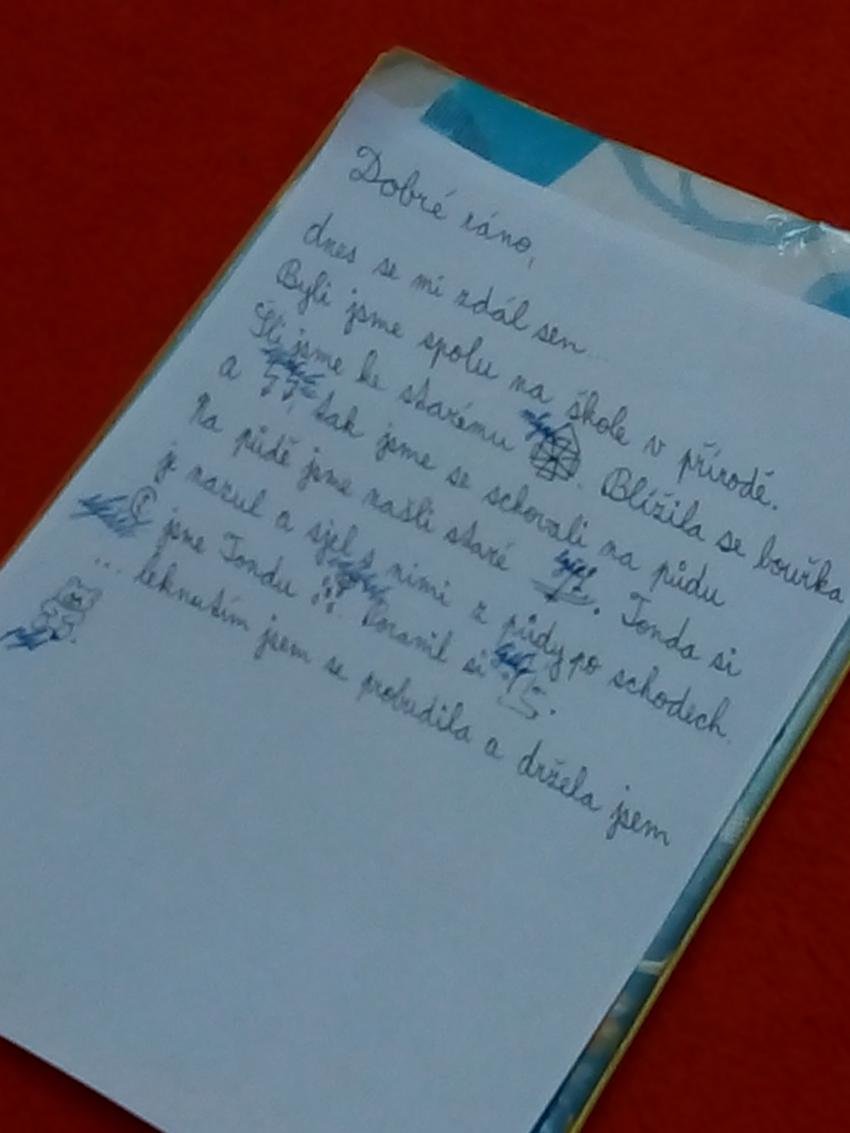 Dobré ráno,
dnes se mi zdál sen...
Byli jsme spolu na škole v přírodě.
Šli jsme ke starému . Blížila se bouřka
a , tak jsme se schovali na půdu
Na půdě jsme našli staré . Tonda si
je nazul a sjel s nimi z půdy po schodech.
jsme Tondu . Poranil si .
... leknutím jsem se probudila a držela jsem